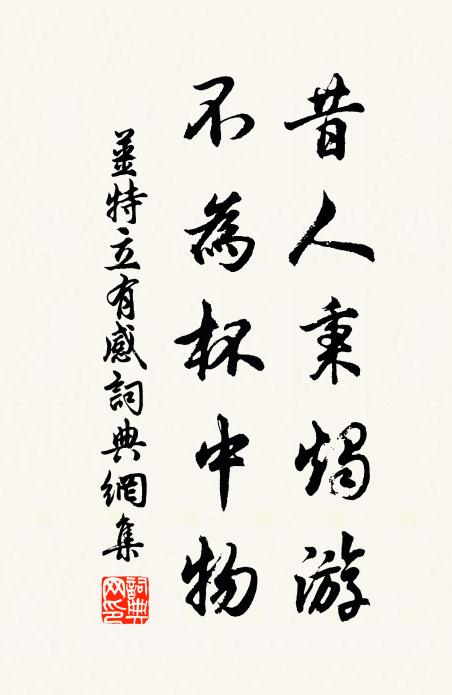 昔人秉燭游
不為杯中物
姜特立有感詞典網集
詞典網印